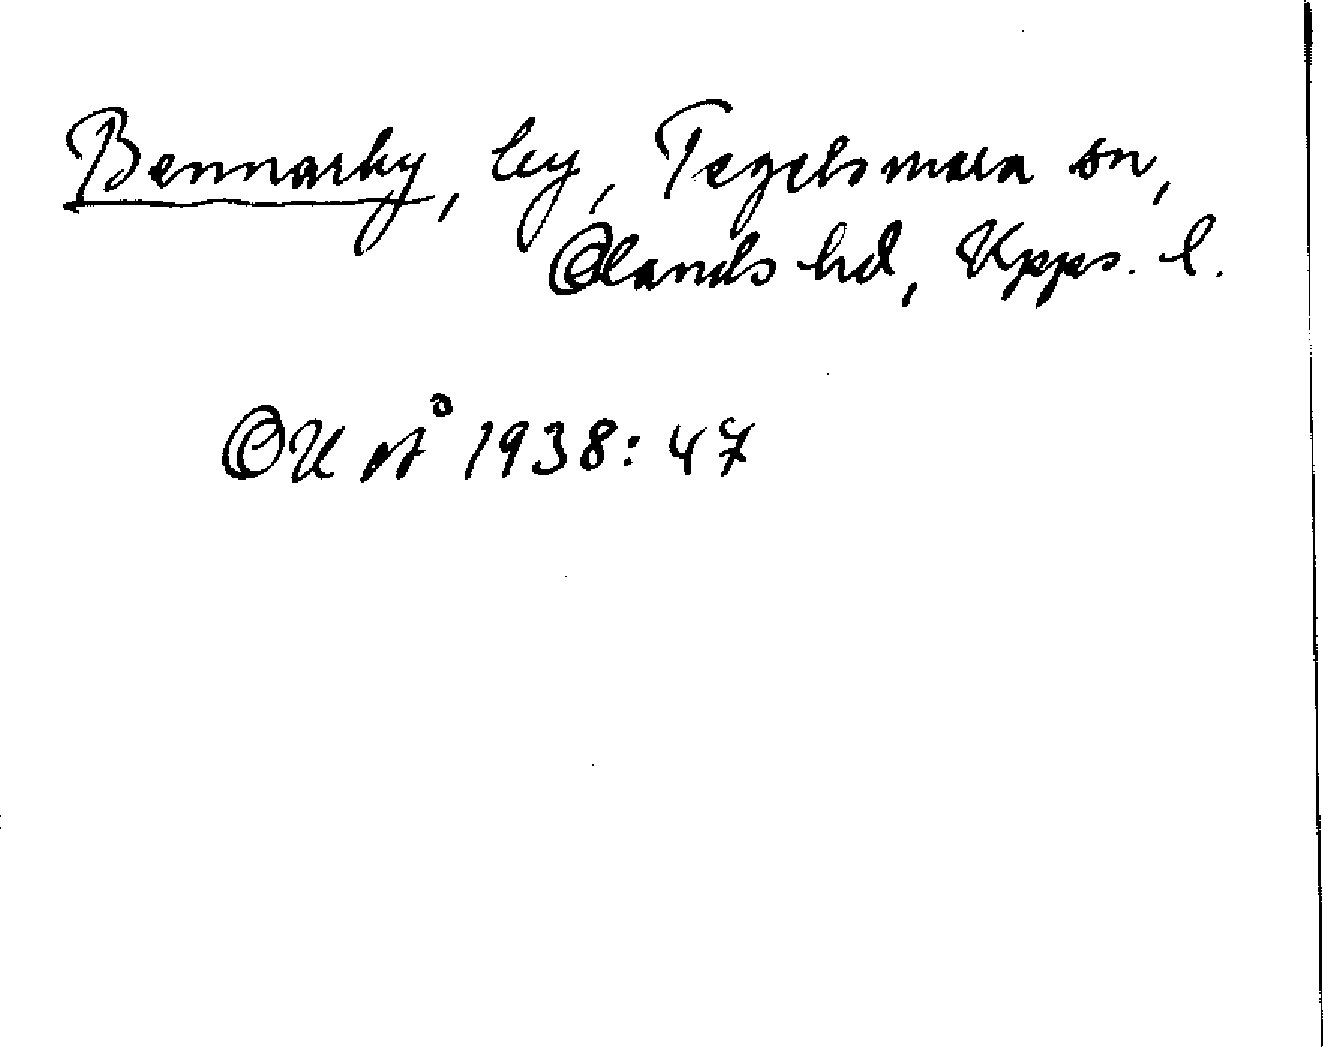 Bennarby, by, Tegelsmora sn,
Olands hd, Upps. l.
OUÅ 1938: 47